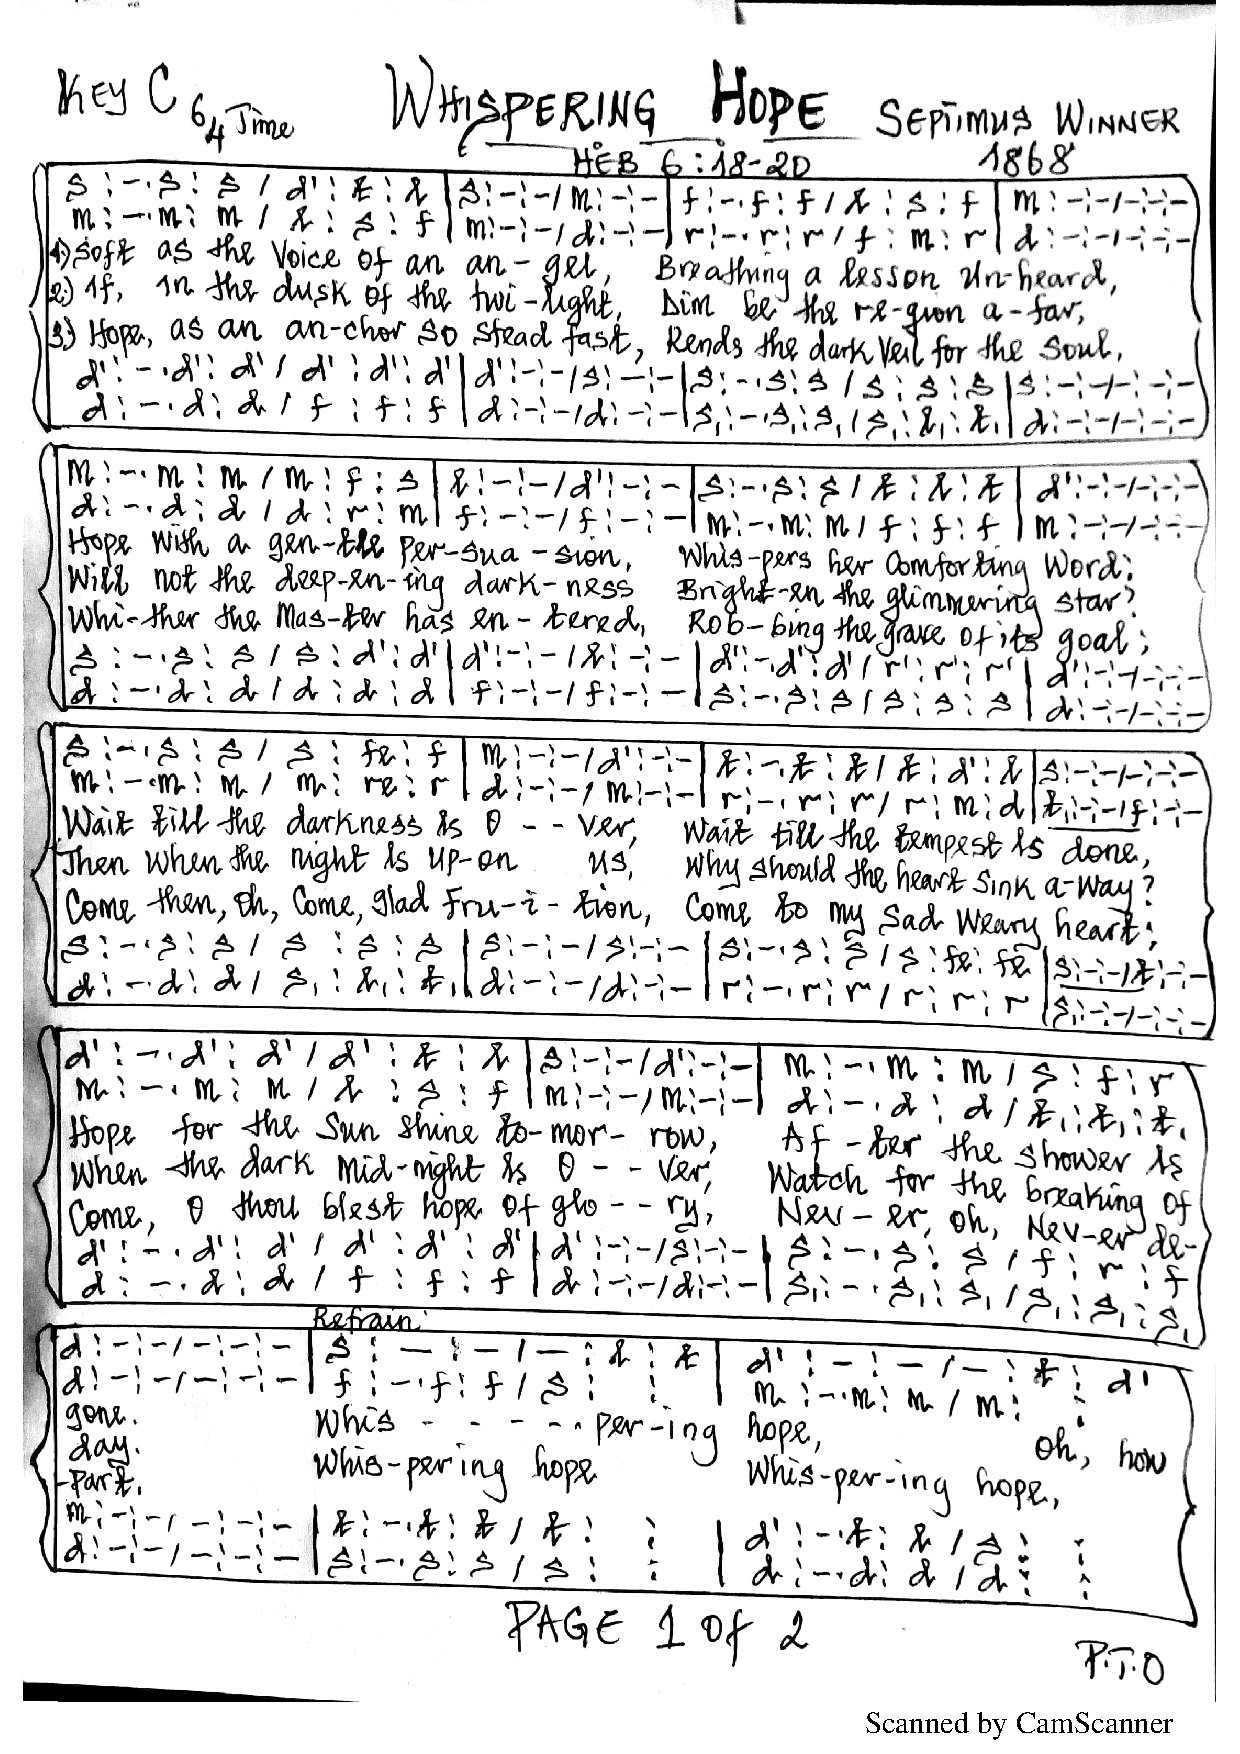 KEY C 6/4 Time WHISPERING HOPE SEPTIMUS WINNER
HEB 6:18-20 1868
s :-.s: s / d' : t : l | s:-:-/m:-:- | f:-.f: f / l : s : f | m:-:-/-:-:-
m:-.m: m / l : s : f | m:-:-/d:-:- | r:-.r: r / f : m : r | d:-:-/-:-:-
1) Soft as the Voice of an an-gel, Breathing a lesson Un-heard,
2) If, in the dusk of the twi-light, Dim be the re-gion a-far,
3) Hope, as an an-chor so stead fast, Rends the dark Veil for the Soul,
d':-.d': d' / d' : d': d' | d':-:-/s:-:- | s:-.s: s / s : s : s | s:-:-/-:-:-
d:-.d: d / f : f : f | d:-:-/d:-:- | s₁:-.s₁: s₁ / s₁ : l₁ : t₁ | d:-:-/-:-:-
m:-.m : m / m : f : s | l:-:-/d':-:- | s:-.s: s / t : l : t | d':-:-/-:-:-
d:-.d: d / d : r : m | f:-:-/f:-:- | m:-.m: m / f : f : f | m:-:-/-:-:-
Hope with a gen-tle Per-sua-sion, Whis-pers her Comforting Word;
Will not the deep-en-ing dark-ness Bright-en the glimmering star?
Whi-ther the Mas-ter has en-tered, Rob-bing the grave of its goal;
s :-.s: s / s : d': d' | d':-:-/l:-:- | d':-.d': d' / r': r': r' | d':-:-/-:-:-
d :-.d: d / d : d : d | f:-:-/f:-:- | s:-.s: s / s : s : s | d:-:-/-:-:-
s:-.s : s / s : fe : f | m:-:-/d':-:- | t:-.t: t / t : d': l | s:-:-/-:-:-
m:-.m: m / m : re : r | d:-:-/m:-:- | r:-.r: r / r : m : d | t₁:-:-/f:-:-
Wait till the darkness is O - - ver, Wait till the tempest is done,
Then when the night is up-on us, Why should the heart sink a-way?
Come then, Oh, Come, glad Fru-i-tion, Come to my sad Weary heart;
s:-.s: s / s : s : s | s:-:-/s:-:- | s:-.s: s / s : fe: fe | s:-:-/t:-:-
d:-.d: d / s₁ : l₁: t₁ | d:-:-/d:-:- | r:-.r: r / r : r : r | s₁:-:-/-:-:-
d' :-.d': d' / d' : t : l | s:-:-/d':-:- | m:-.m : m / s : f : r
m:-.m: m / l : s : f | m:-:-/m:-:- | d:-.d: d / t₁: t₁: t₁
Hope for the Sun Shine to-mor-row, Af-ter the shower is
When the dark mid-night is O - - ver, Watch for the breaking of
Come, O thou blest hope of glo - - ry, Nev-er, oh, Nev-er de-
d':-.d': d' / d' : d' : d' | d':-:-/s:-:- | s:-.s: s / f : r : f
d:-.d: d / f : f : f | d:-:-/d:-:- | s₁:-.s₁: s₁ / s₁: s₁: s₁
Refrain:
d:-:-/-:-:- | s : - : - / - : l : t | d' : - : - / - : t : d'
d:-:-/-:-:- | f :-.f: f / s : : | m :-.m: m / m : :
gone. Whis - - - - - per-ing hope, Oh, how
day. Whis-per-ing hope Whis-per-ing hope,
-Part.
m:-:-/-:-:- | t:-.t: t / t : : | d':-.t: l / s : :
d:-:-/-:-:- | s:-.s: s / s : : | d:-.d: d / d : :
PAGE 1 Of 2
P.T.O
Scanned by CamScanner